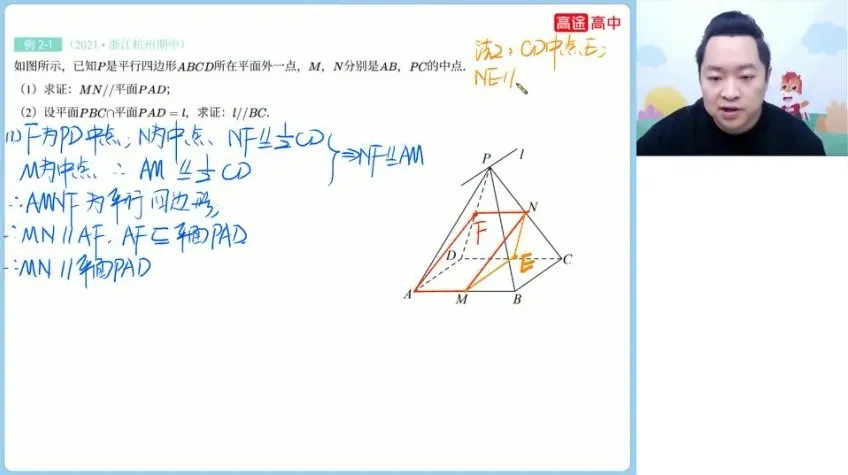 高途 高中
例 2-1 (2021·浙江杭州期中)
如图所示，已知P是平行四边形ABCD所在平面外一点，M，N分别是AB，PC的中点.
(1) 求证：MN//平面PAD；
(2) 设平面PBC∩平面PAD=l，求证：l//BC.
法2：CD中点E；
NE//
(1) F为PD中点；N为中点、NF⫽=½CD
M为中点 ∴ AM⫽=½CD
⇒NF⫽=AM
∴AMNF为平行四边形，
∴MN//AF，AF⊆平面PAD
∴MN//平面PAD
P l
F N
D E C
A M B